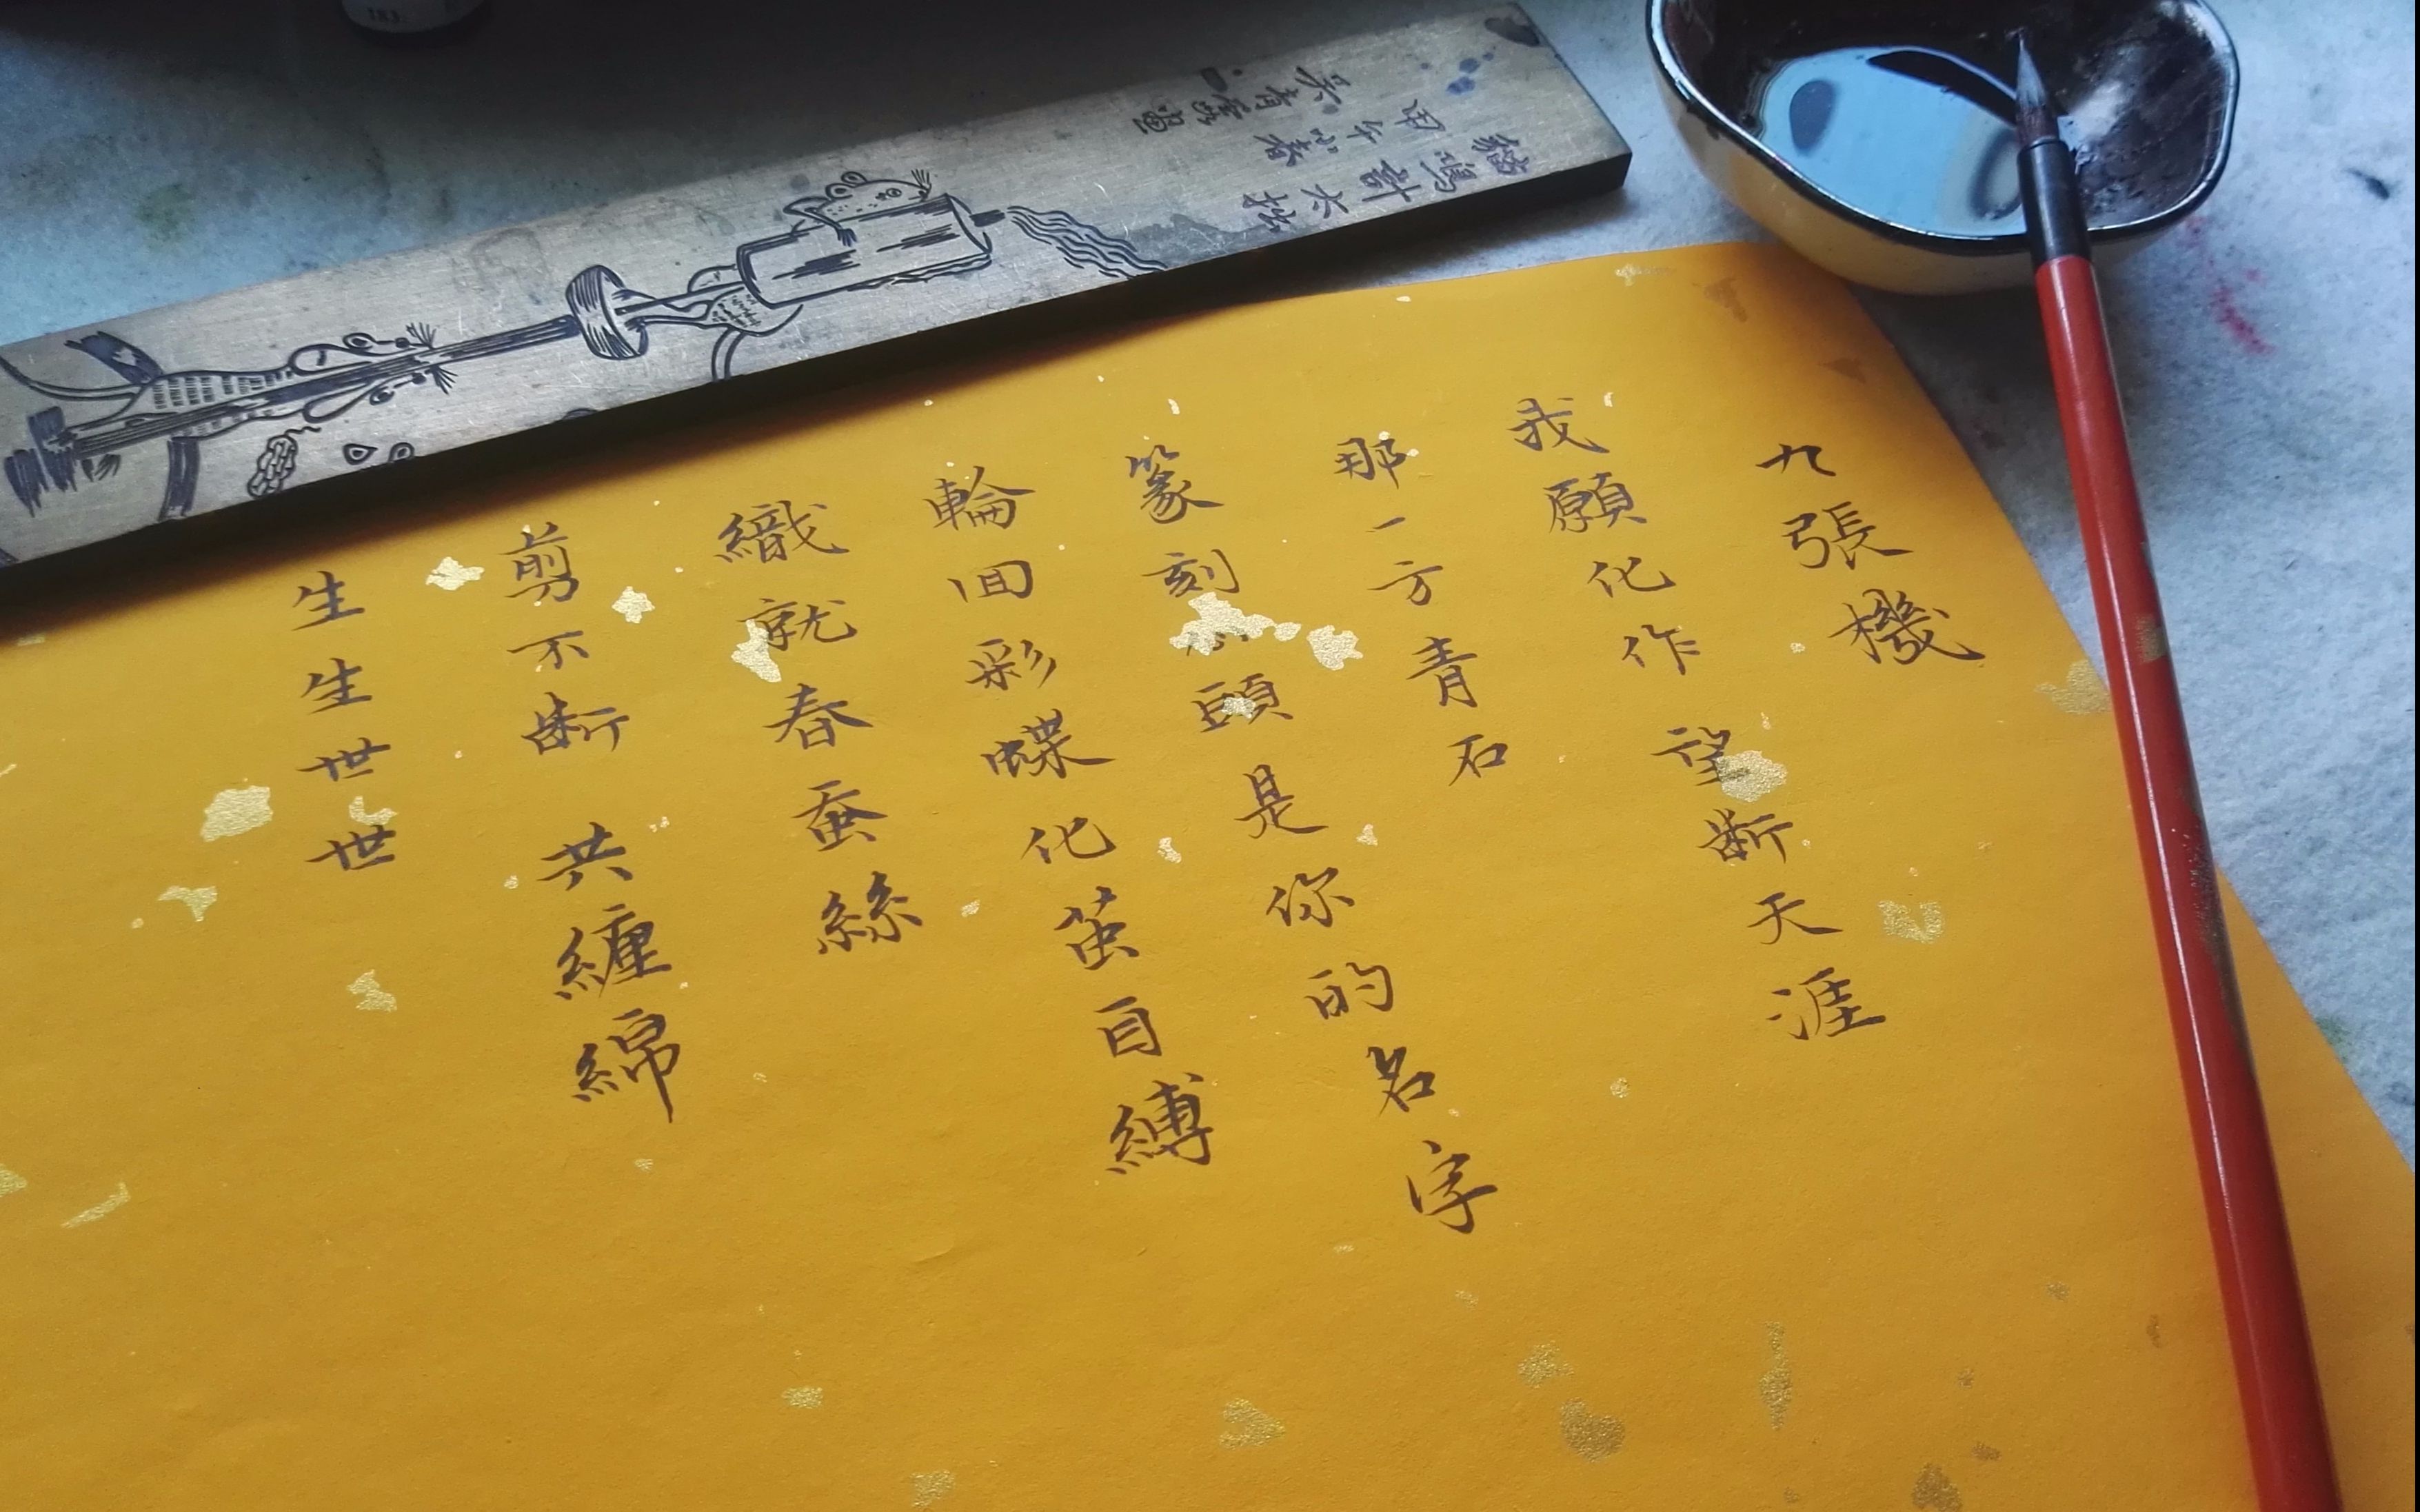 九張機
我願化作望断天涯
那一方青石
篆刻心頭是你的名字
輪囬彩蝶化茧自縛
織就春蚕絲
剪不断 共纏綿
生生世世
貓鳴計太拙
甲午小春
吴青霞畫